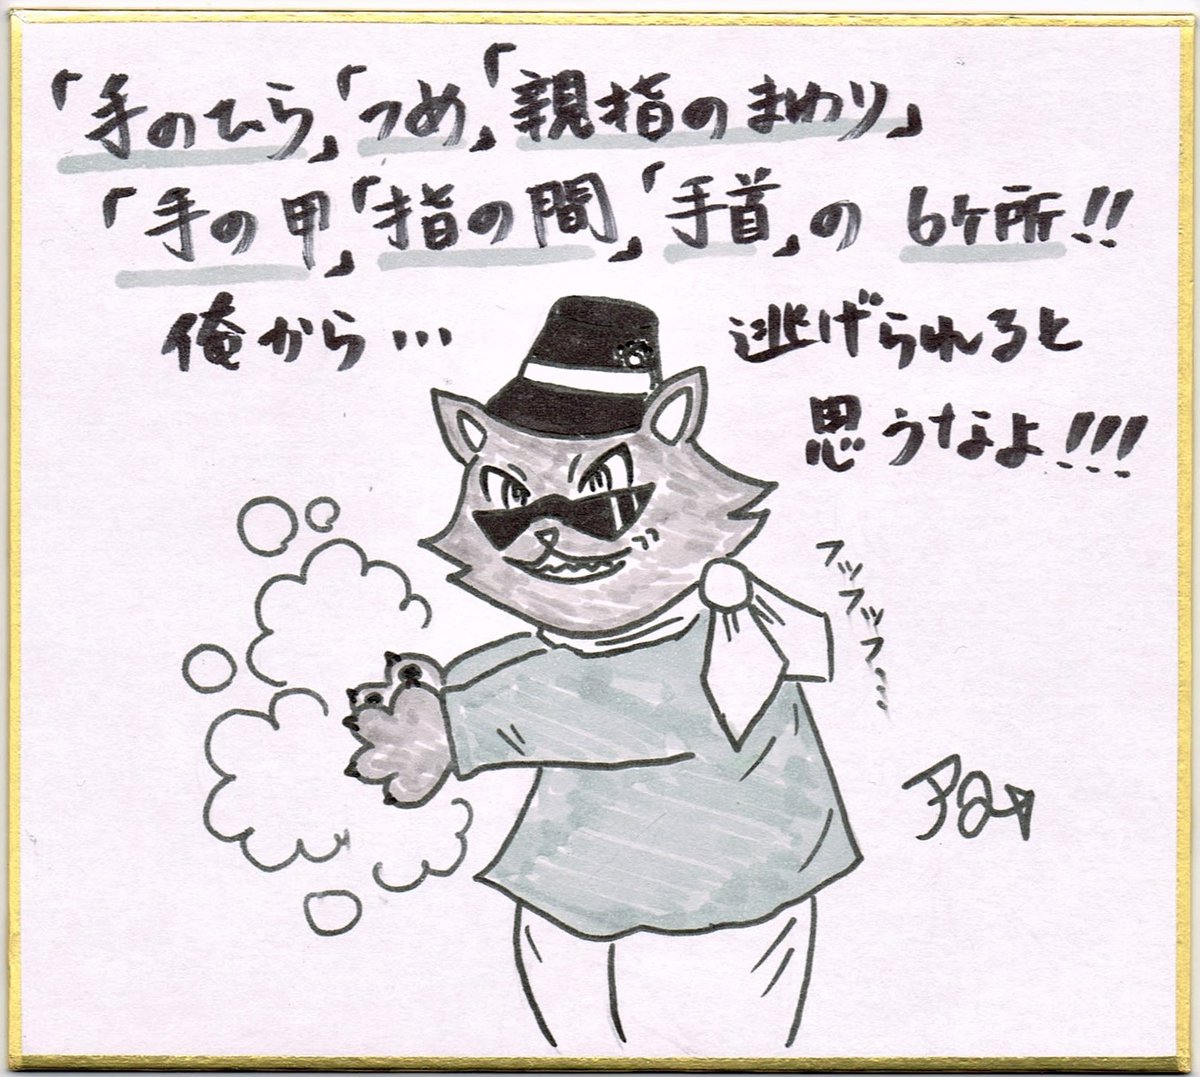 「手のひら」「つめ」「親指のまわり」
「手の甲」「指の間」「手首」の 6ケ所!!
俺から… 逃げられると
思うなよ!!!
フッフッフ…